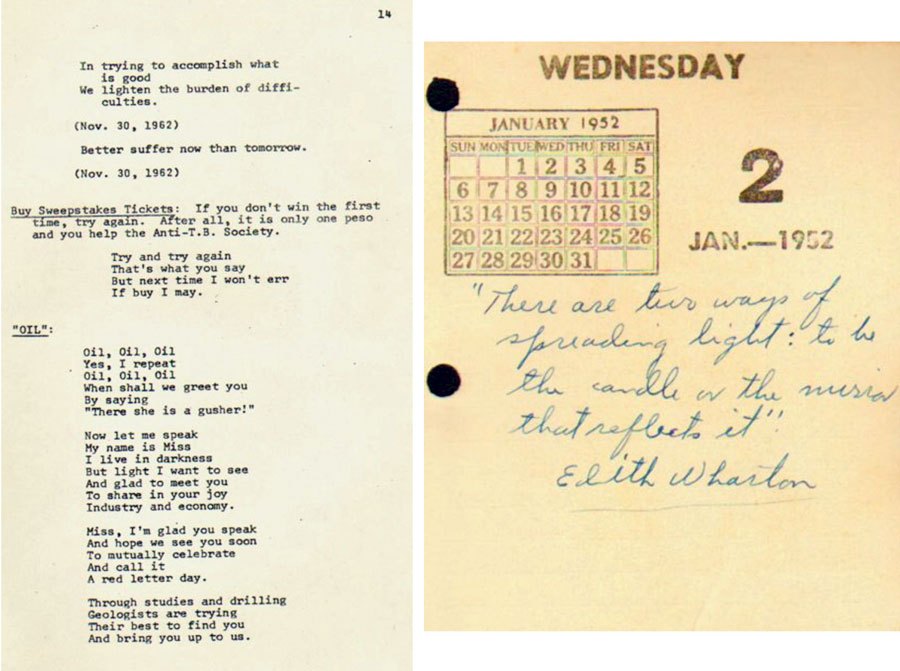 14
In trying to accomplish what
is good
We lighten the burden of diffi-
culties.
(Nov. 30, 1962)
Better suffer now than tomorrow.
(Nov. 30, 1962)
Buy Sweepstakes Tickets: If you don't win the first
time, try again. After all, it is only one peso
and you help the Anti-T.B. Society.
Try and try again
That's what you say
But next time I won't err
If buy I may.
"OIL":
Oil, Oil, Oil
Yes, I repeat
Oil, Oil, Oil
When shall we greet you
By saying
"There she is a gusher!"
Now let me speak
My name is Miss
I live in darkness
But light I want to see
And glad to meet you
To share in your joy
Industry and economy.
Miss, I'm glad you speak
And hope we see you soon
To mutually celebrate
And call it
A red letter day.
Through studies and drilling
Geologists are trying
Their best to find you
And bring you up to us.
WEDNESDAY
JANUARY 1952
SUN MON TUE WED THU FRI SAT
1 2 3 4 5
6 7 8 9 10 11 12
13 14 15 16 17 18 19
20 21 22 23 24 25 26
27 28 29 30 31
2
JAN.—1952
"There are two ways of
spreading light: to be
the candle or the mirror
that reflects it".
Edith Wharton